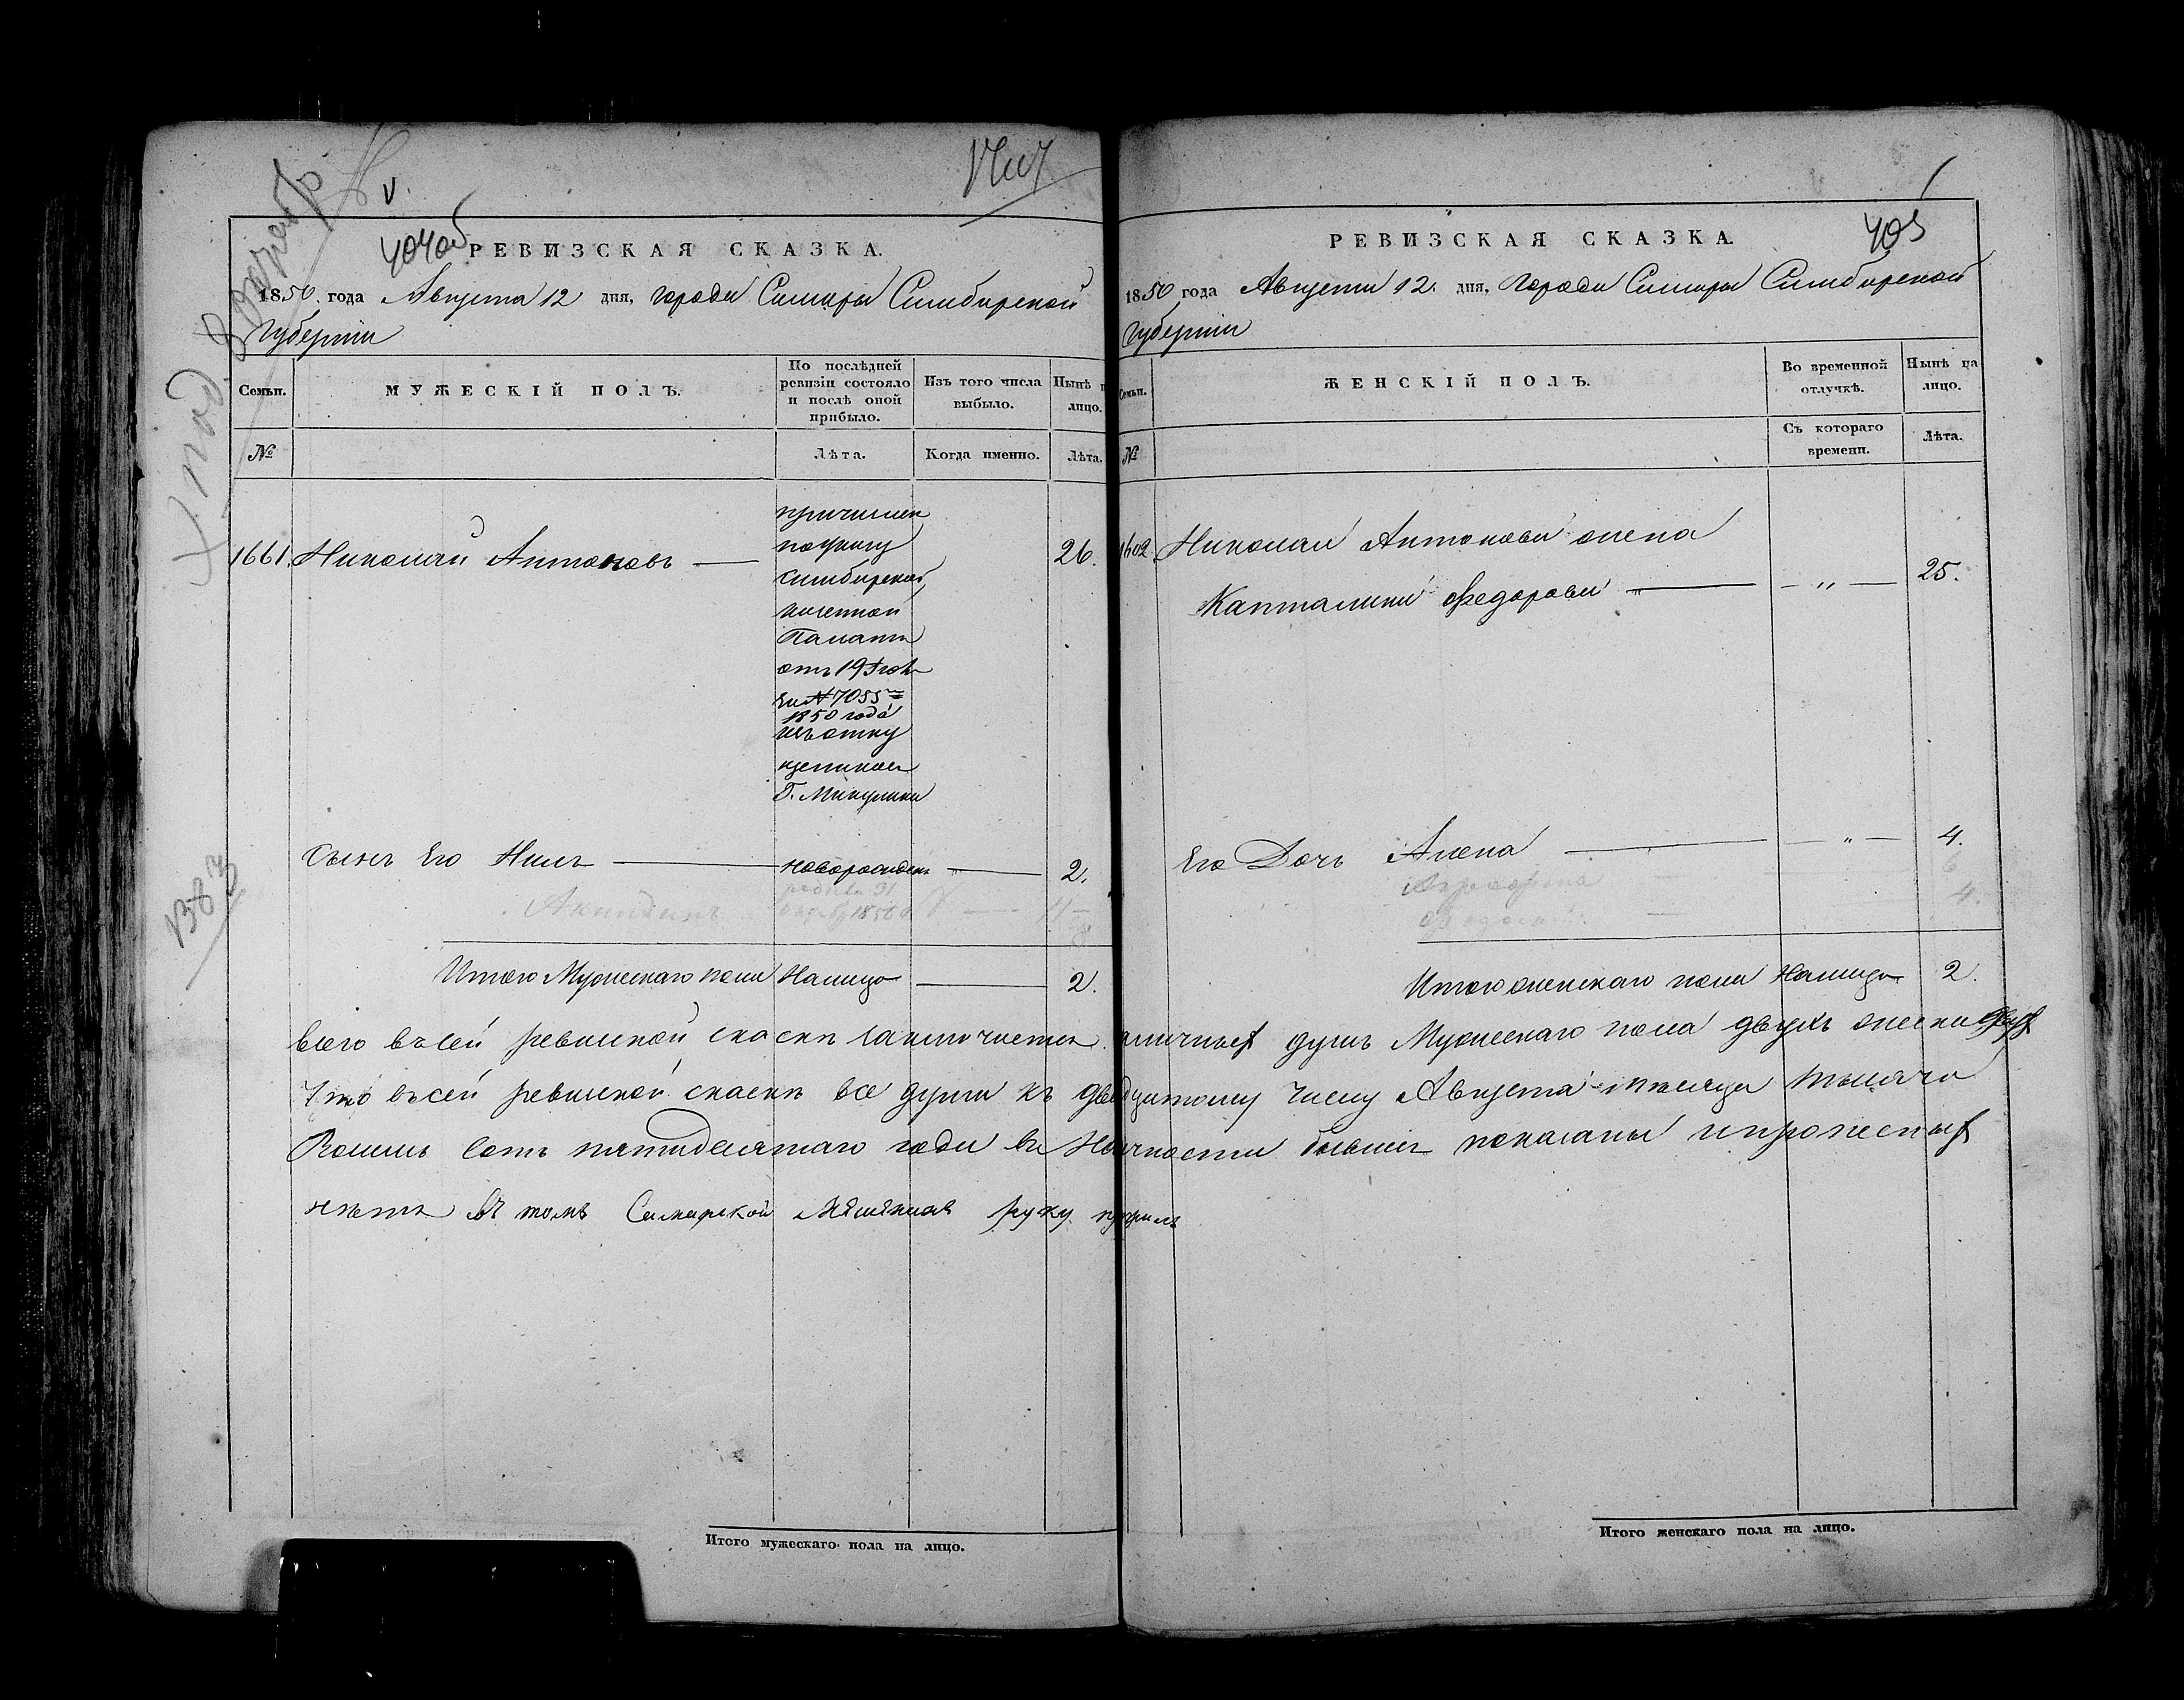 404об
РЕВИЗСКАЯ СКАЗКА.
1850 года Августа 12 дня, города Самары Симбирской
Губернии
Семьи.
МУЖЕСКІЙ ПОЛЪ.
По послѣдней ревизіи состояло и послѣ оной прибыло.
Изъ того числа выбыло.
Нынѣ на лицо.
№
Лѣта.
Когда именно.
Лѣта.
1661. Николай Антоновъ — 26.
причислен
по указу
Симбирской
казенной
Палаты
отъ 19 Июля
за № 7055
1850 года
изъ отпу
щенников
Г. Микулина
Сынъ Его Нилъ — новорожден — 2.
Акиндинъ
Итого Мужескаго пола Налицо — 2.
1850 г.
1383
405
РЕВИЗСКАЯ СКАЗКА.
1850 года Августа 12. дня, Города Самары Симбирской
Губернии
Семьи.
ЖЕНСКІЙ ПОЛЪ.
Во временной отлучкѣ.
Нынѣ на лицо.
№
Съ котораго времени.
Лѣта.
Николая Антонова жена
Капталина Федорова — „ — 25.
Его Дочь Алена — „ — 4.
4.
Итого женскаго пола Налицо 2.
всего въ сей ревиской скаскѣ заключается наличных душъ Мужескаго пола двухъ женска
Что въ сей ревиской скаскѣ все души къ двадцатому числу Августа месяца тысяча
Восемь Сотъ пятидесятаго года въ Наличности бывшие показаны и прописных
нѣтъ Въ томъ Самарской руку
Итого мужескаго пола на лицо.
Итого женскаго пола на лицо.